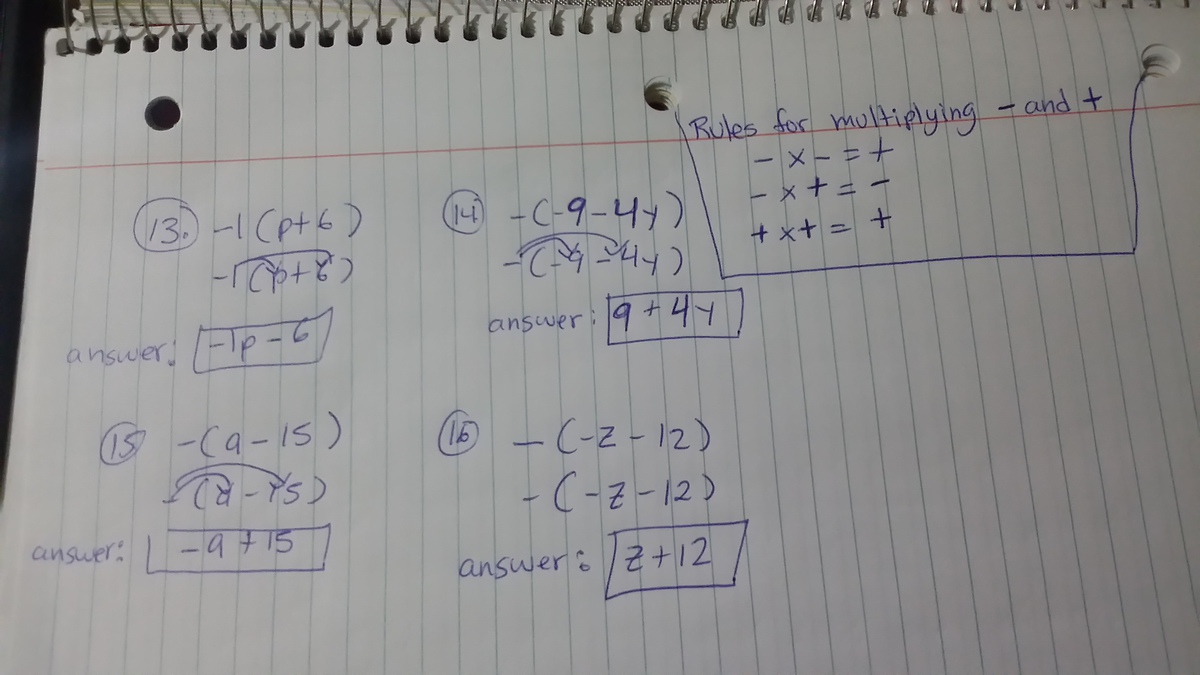 Rules for multiplying - and +
- x - = +
- x + = -
+ x + = +
13. -1(p+6)
-1(p+6)
answer: -1p-6
14 -(-9-4y)
-(-9-4y)
answer: 9+4y
15 -(a-15)
-(a-15)
answer: -a+15
16 -(-z-12)
-(-z-12)
answer: z+12